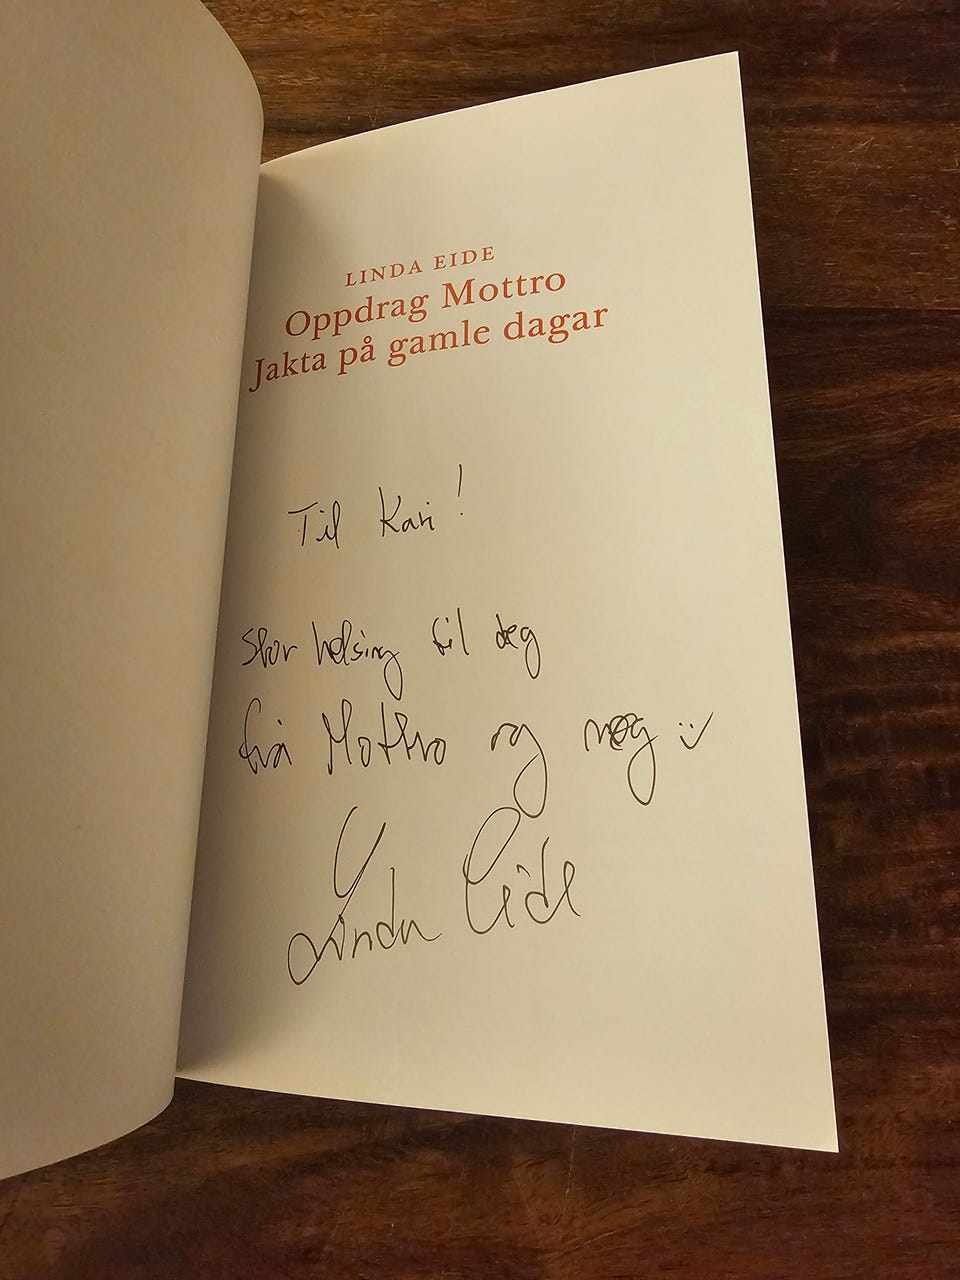 LINDA EIDE
Oppdrag Mottro
Jakta på gamle dagar
Til Kari!
Stor helsing til deg
frå Mottro og meg :)
Linda Eide